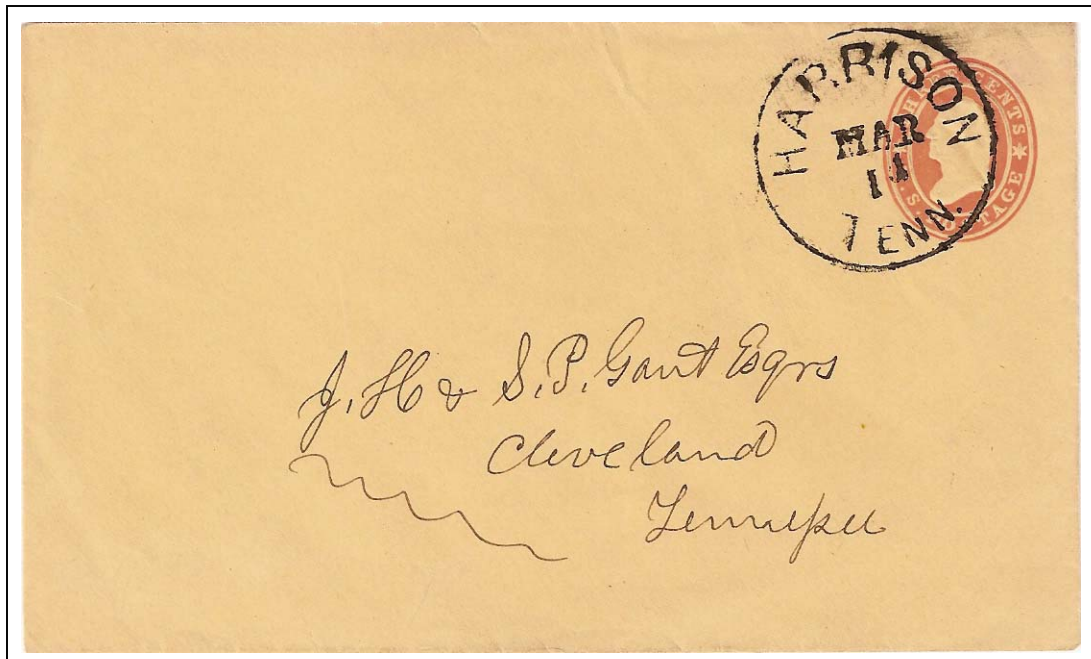 HARRISON
MAR
14
TENN.
THREE CENTS
U.S. POSTAGE
J. H & S. P. Gaut Esqrs
Cleveland
Tennessee